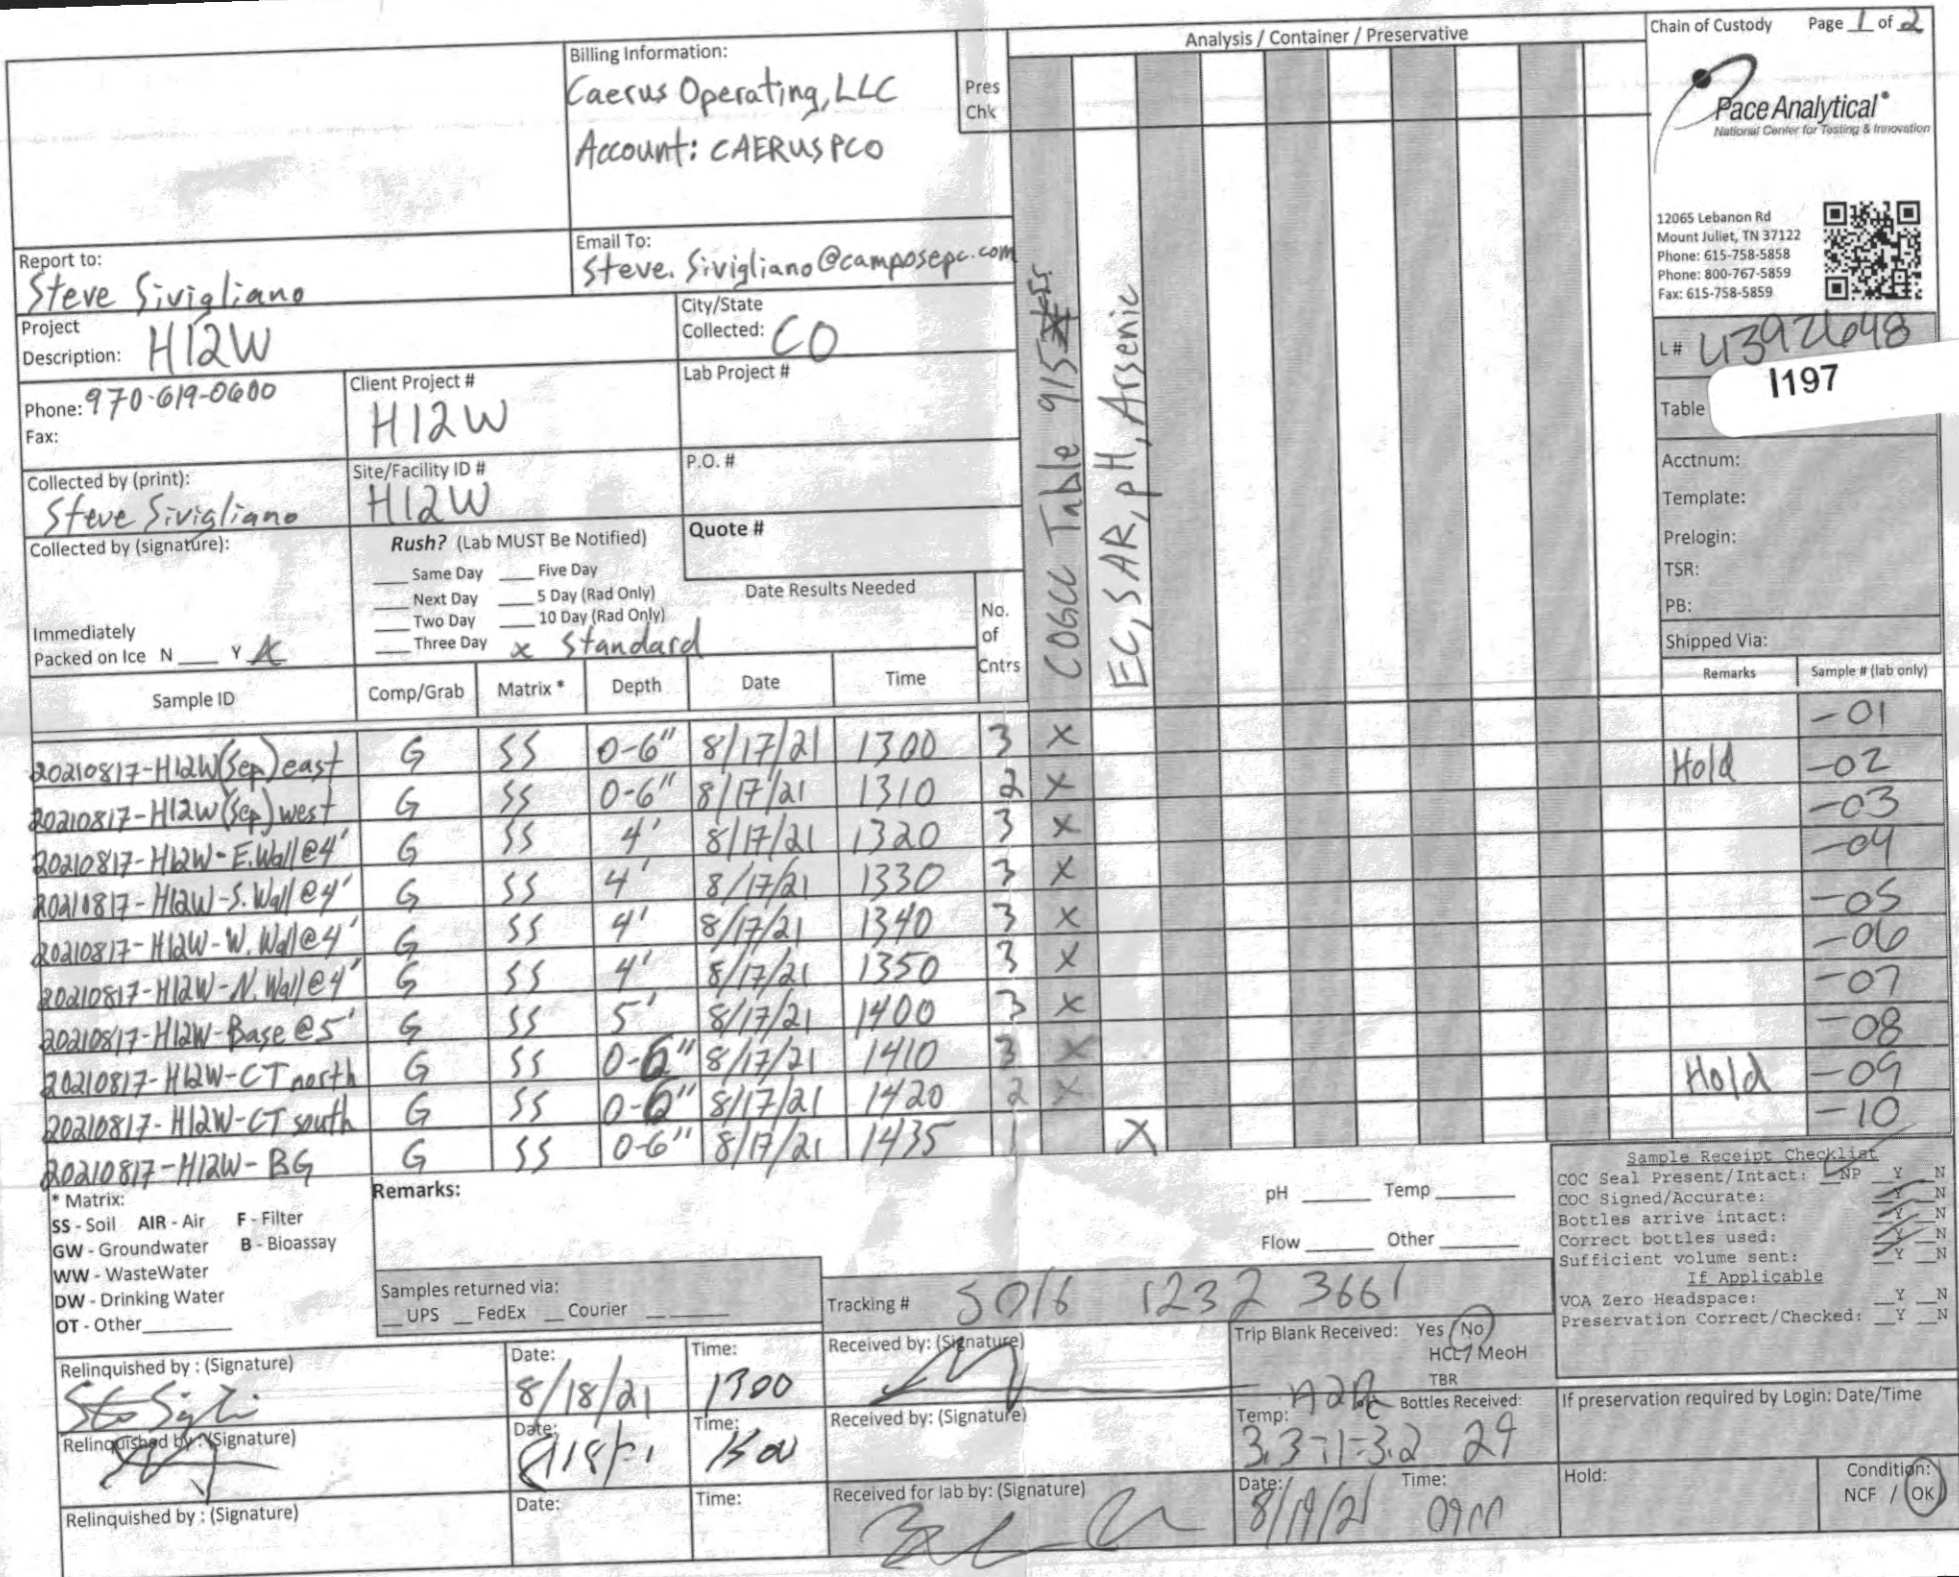 Chain of Custody Page 1 of 2
Billing Information:
Caerus Operating, LLC
Account: CAERUSPCO
Pres
Chk
Analysis / Container / Preservative
Pace Analytical®
National Center for Testing & Innovation
12065 Lebanon Rd
Mount Juliet, TN 37122
Phone: 615-758-5858
Phone: 800-767-5859
Fax: 615-758-5859
Report to:
Steve Sivigliano
Email To:
Steve.Sivigliano@camposepc.com
Project
Description: H12W
City/State
Collected: CO
L#
Table
I197
Phone: 970-619-0600
Fax:
Client Project #
H12W
Lab Project #
Collected by (print):
Steve Sivigliano
Site/Facility ID #
H12W
P.O. #
Acctnum:
Template:
Prelogin:
TSR:
PB:
Shipped Via:
Collected by (signature):
Rush? (Lab MUST Be Notified)
___ Same Day ___ Five Day
___ Next Day ___ 5 Day (Rad Only)
___ Two Day ___ 10 Day (Rad Only)
___ Three Day x Standard
Quote #
Date Results Needed
No.
of
Cntrs
Immediately
Packed on Ice N ___ Y X
COGCC Table 915
EC, SAR, pH, Arsenic
Sample ID Comp/Grab Matrix * Depth Date Time Remarks Sample # (lab only)
20210817-H12W(Sep)east G SS 0-6" 8/17/21 1300 3 X -01
20210817-H12W(Sep)west G SS 0-6" 8/17/21 1310 2 X Hold -02
20210817-H12W-E.Wall@4' G SS 4' 8/17/21 1320 3 X -03
20210817-H12W-S.Wall@4' G SS 4' 8/17/21 1330 3 X -04
20210817-H12W-W.Wall@4' G SS 4' 8/17/21 1340 3 X -05
20210817-H12W-N.Wall@4' G SS 4' 8/17/21 1350 3 X -06
20210817-H12W-Base@5' G SS 5' 8/17/21 1400 3 X -07
20210817-H12W-CT north G SS 0-6" 8/17/21 1410 3 X -08
20210817-H12W-CT south G SS 0-6" 8/17/21 1420 2 X Hold -09
20210817-H12W-BG G SS 0-6" 8/17/21 1435 1 X -10
* Matrix:
SS - Soil AIR - Air F - Filter
GW - Groundwater B - Bioassay
WW - WasteWater
DW - Drinking Water
OT - Other
Remarks:
pH ___ Temp ___
Flow ___ Other ___
Sample Receipt Checklist
COC Seal Present/Intact: __NP __Y __N
COC Signed/Accurate: __Y __N
Bottles arrive intact: __Y __N
Correct bottles used: __Y __N
Sufficient volume sent: __Y __N
If Applicable
VOA Zero Headspace: __Y __N
Preservation Correct/Checked: __Y __N
Samples returned via:
__ UPS __ FedEx __ Courier ___
Tracking # 5016 1232 3661
Relinquished by : (Signature)
Date:
8/18/21
Time:
1300
Received by: (Signature)
Trip Blank Received: Yes / No
HCL / MeoH
TBR
Relinquished by : (Signature)
Date:
Time:
Received by: (Signature)
Temp: Bottles Received:
29
If preservation required by Login: Date/Time
Relinquished by : (Signature)
Date:
Time:
Received for lab by: (Signature)
Date:
8/19/21
Time:
0900
Hold:
Condition:
NCF / OK